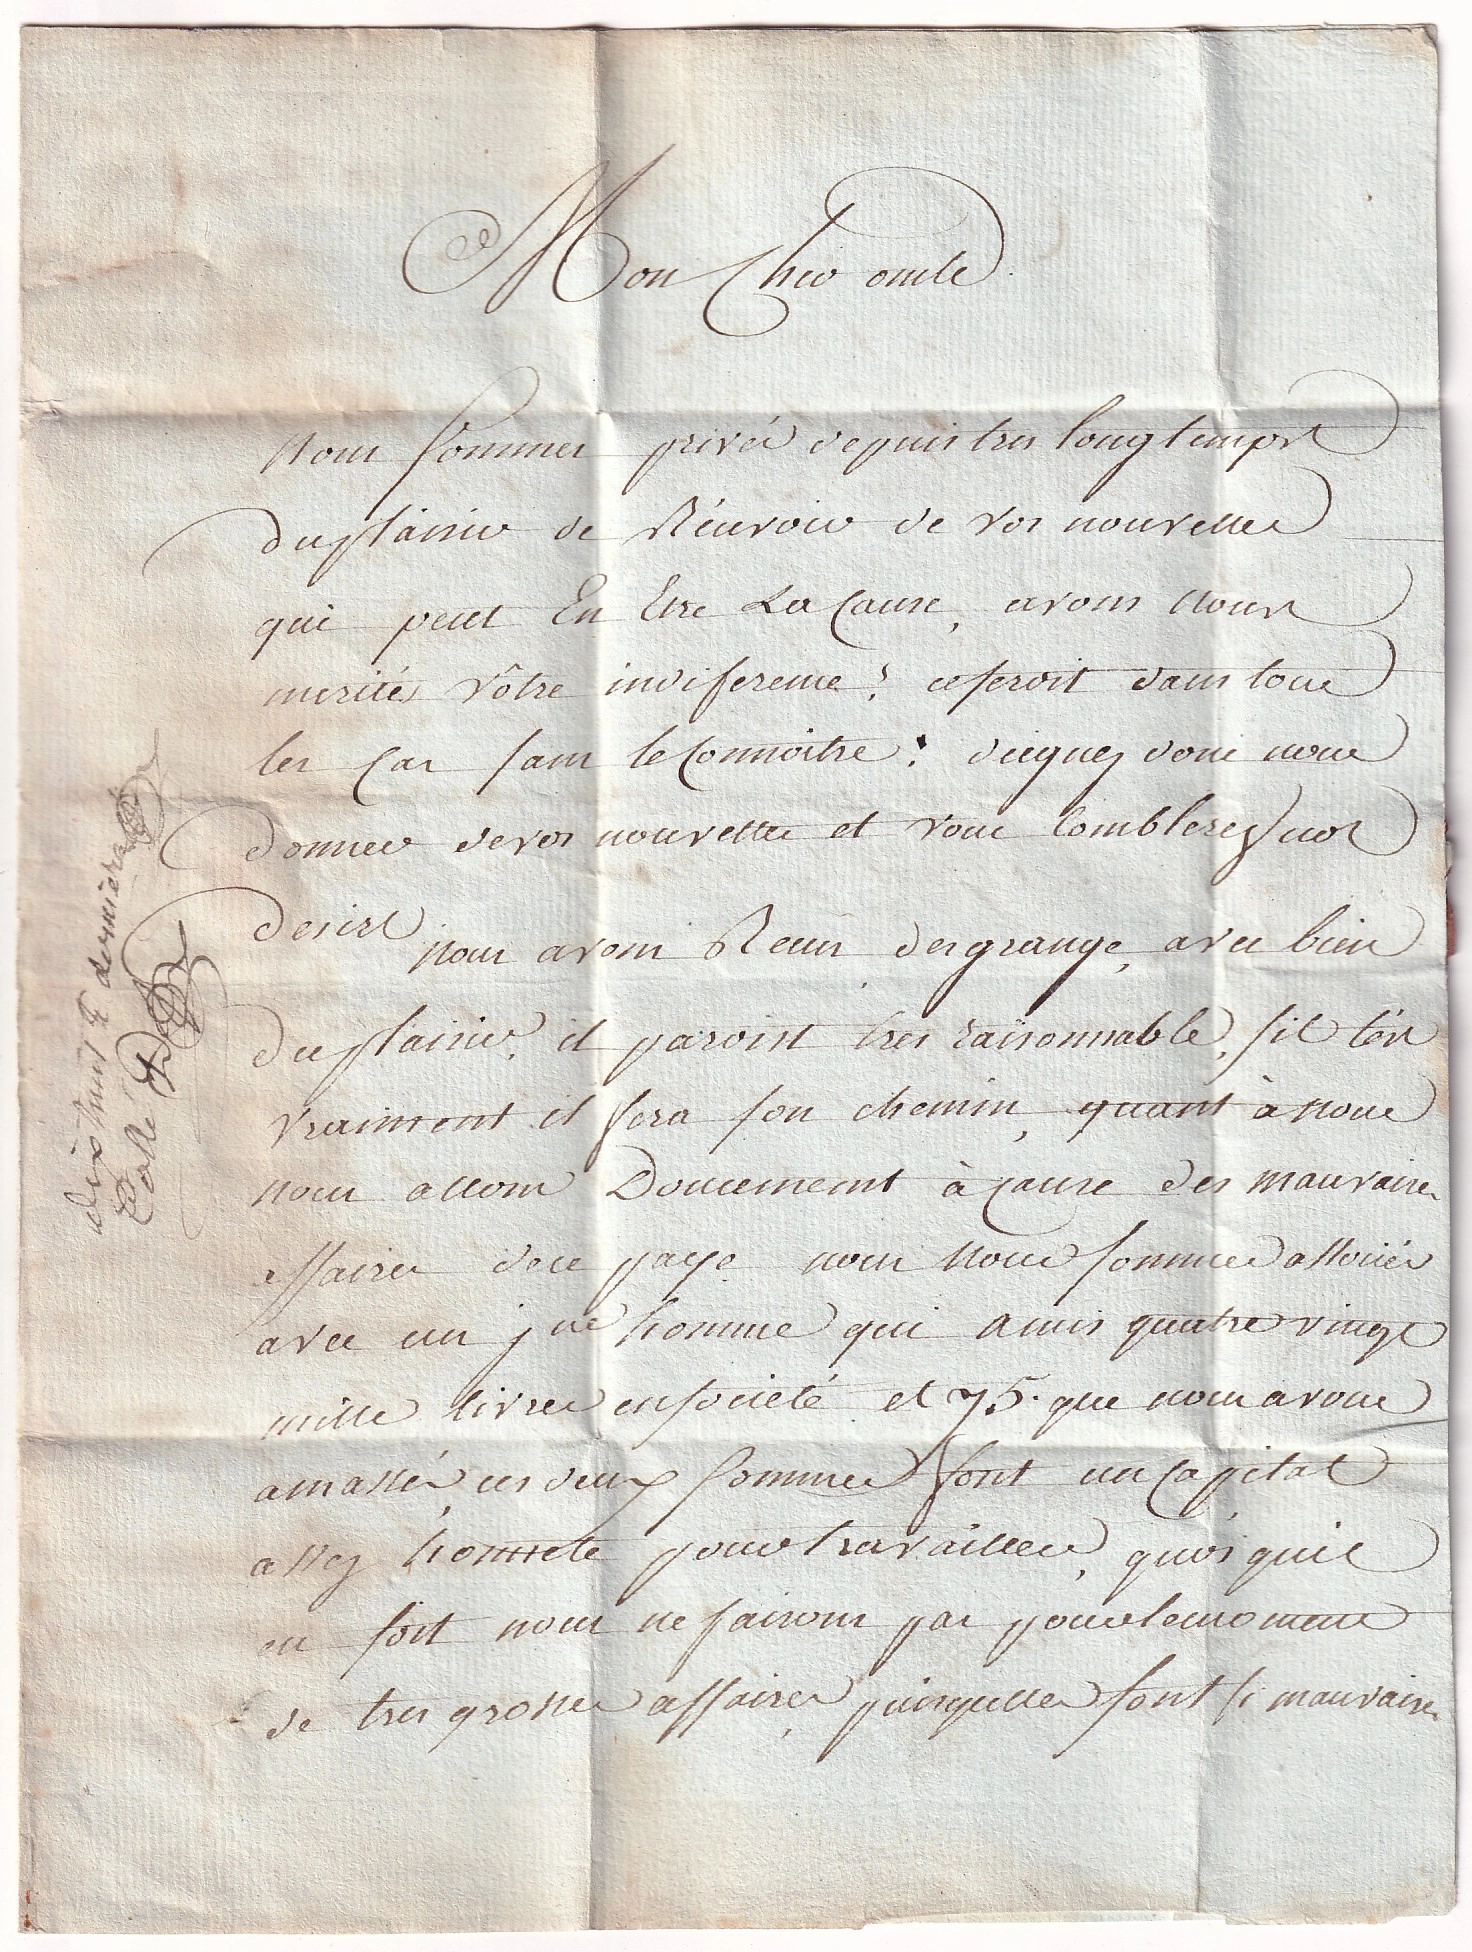 Mon Cher oncle
nous sommes privés depuis tres longtemps
du plaisir de Récuvoir de vos nouvelles
qui peut En Etre La Cause, avons nous
merités vôtre indiference? ce seroit dans tous
les Cas sans le Connoitre: diegnez donc nous
donner de vos nouvelles et vous Comblerez nos
desirs
nous avons Recus desgrange, avec bien
du plaisir, il paroist tres raisonnable, sil lést
vraiment il fera son chemin, quant à nous
nous allons Doucement à Cause des mauvaises
affaires de ce paÿs nous nous sommes assosiés
avec un jne homme qui a mis quatre vingt
mille livres en société et 75. que nous avons
amassés, ces deux sommes font un Capital
assez honnete pour travailler, quoi quil
en soit nous ne faisons pas pour le moment
de tres grosses affaires, puisquelles sont si mauvaises
dix huit & derniere
Collé